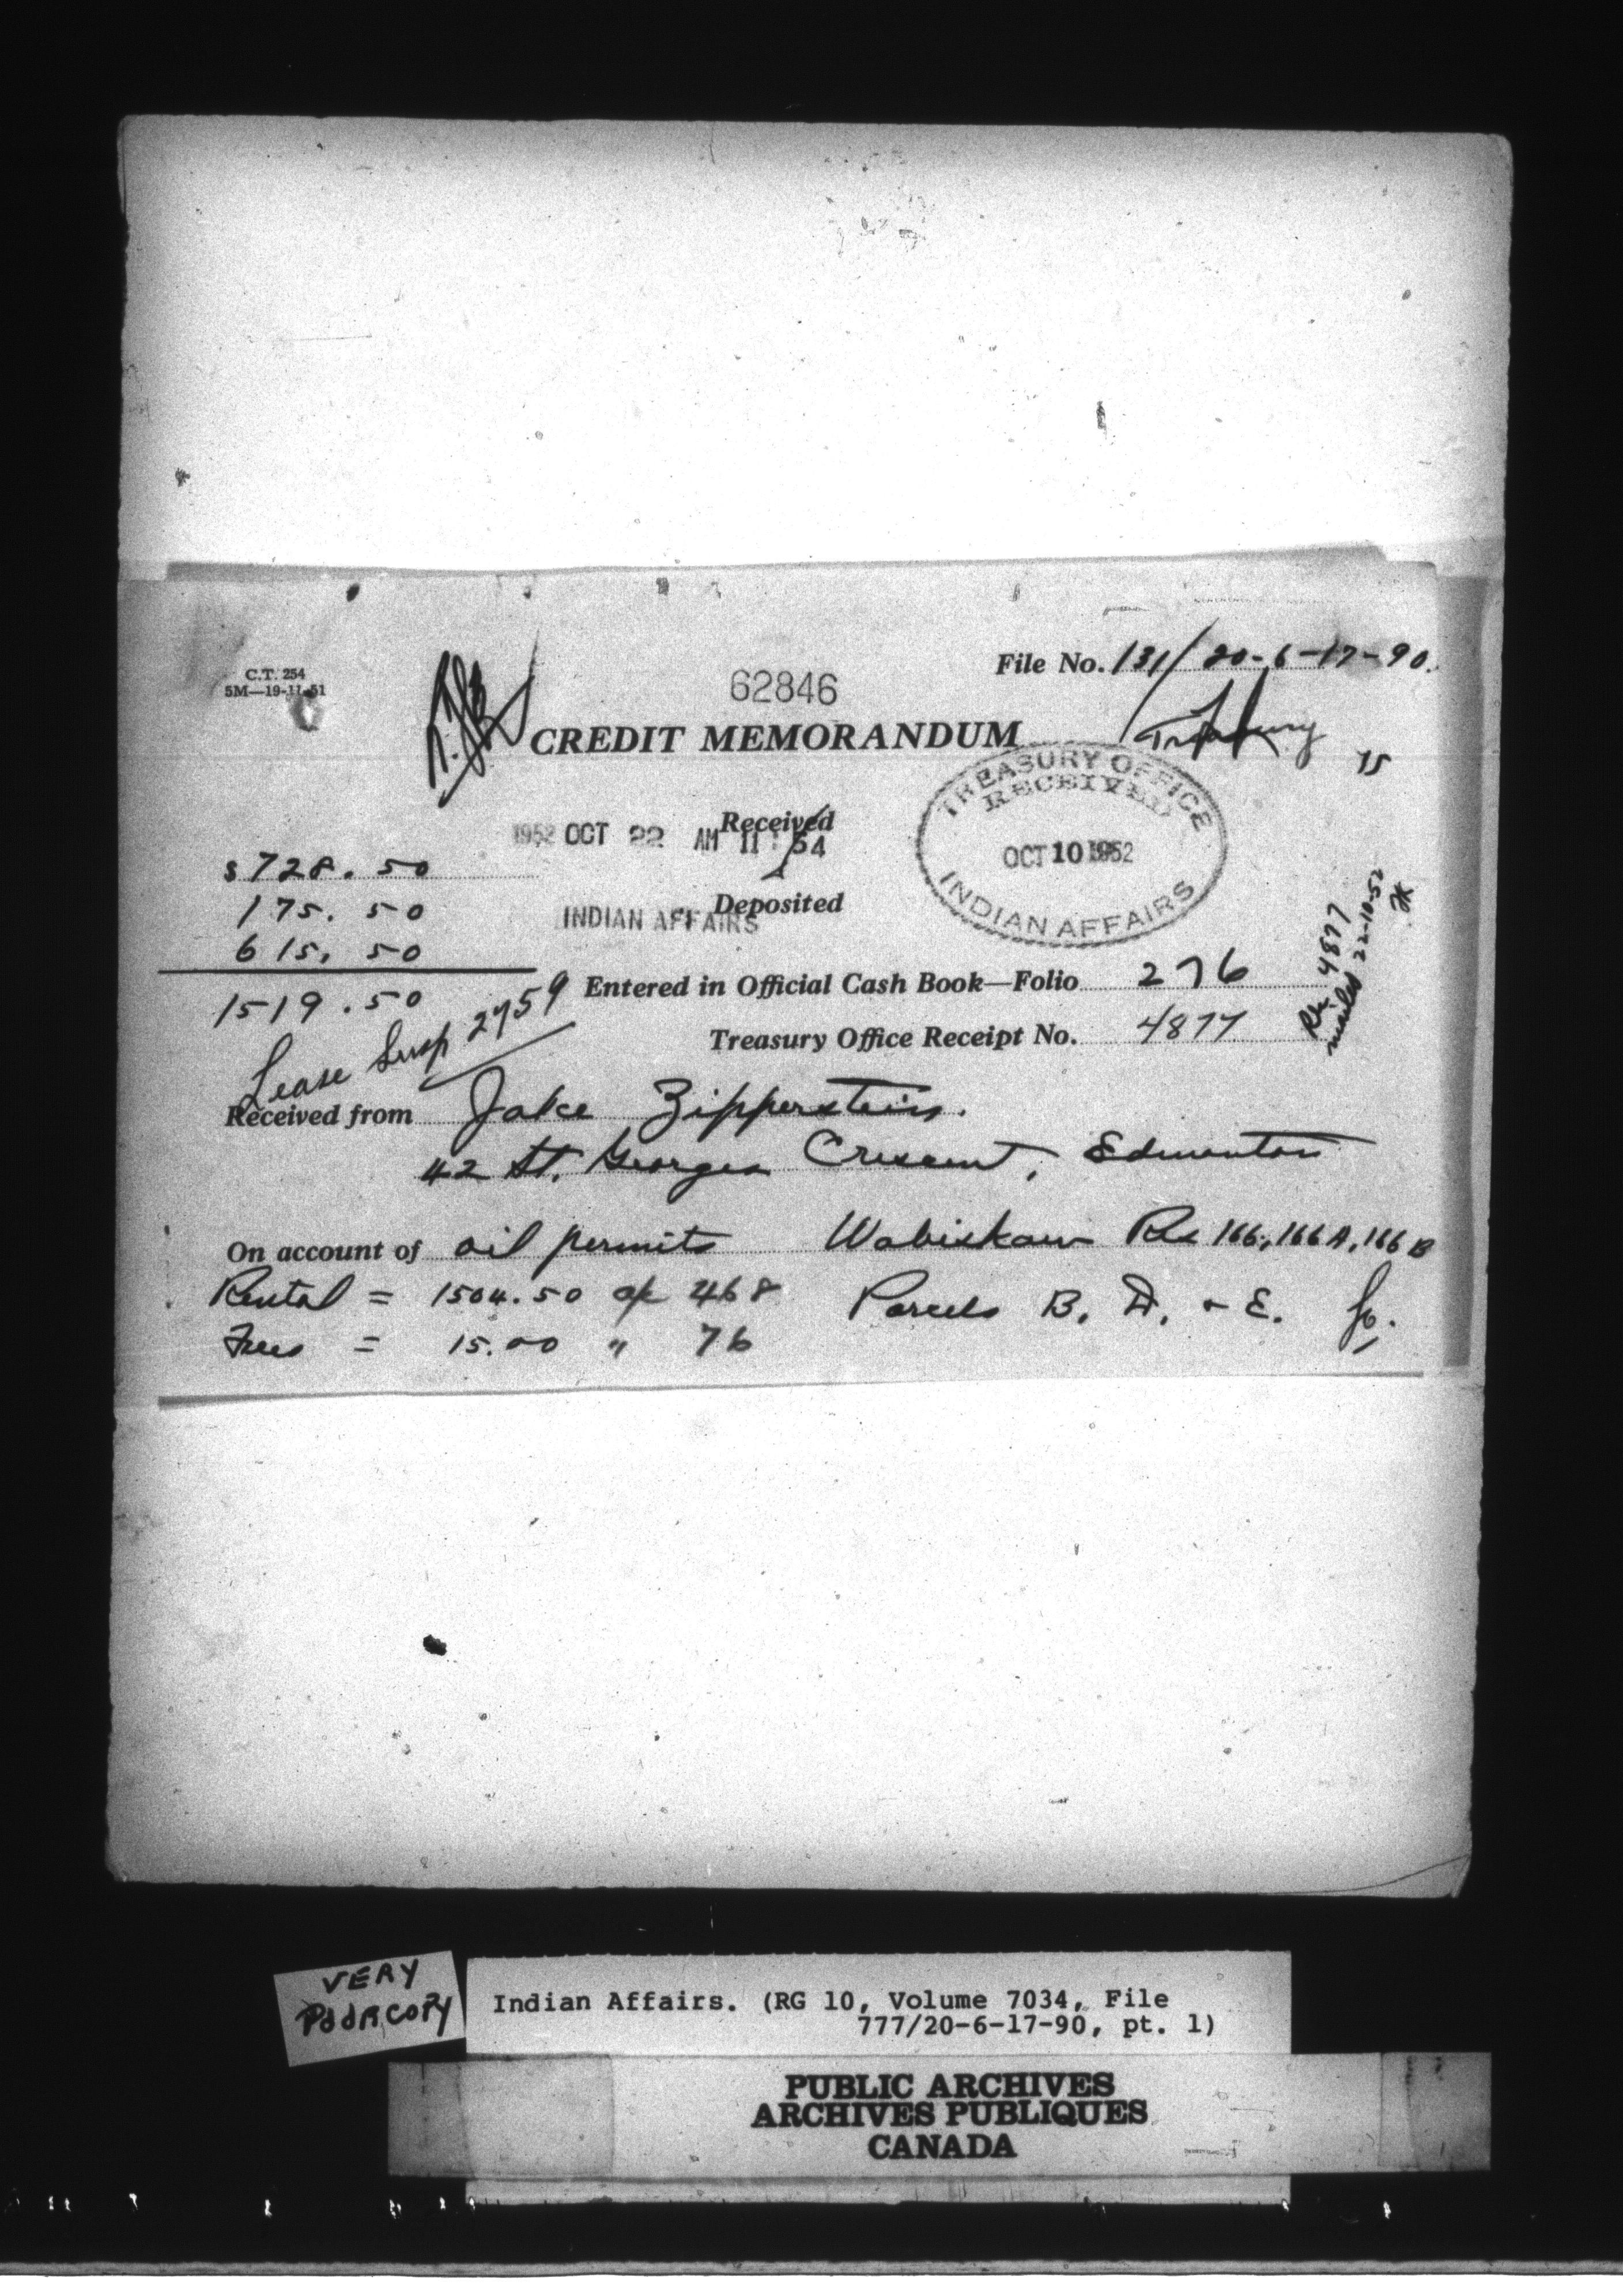 C.T. 254
5M—19-11-51
62846
File No. 131/20-6-17-90.
CREDIT MEMORANDUM
Treasury
15
TREASURY OFFICE
RECEIVED
OCT 10 1952
INDIAN AFFAIRS
1952 OCT 22 AM 11:54
INDIAN AFFAIRS
Received
Deposited
$728.50
175.50
615.50
1519.50
Lease Susp 2759
Entered in Official Cash Book—Folio 276
Treasury Office Receipt No. 4877
4877
mailed 22-10-52
Received from Jake Zipperstein.
42 St. Georges Crescent, Edmonton
On account of oil permits Wabiskaw Rs 166, 166A, 166B
Rental = 1504.50 a/c 468 Parcels B, D, + E.
Fees = 15.00 " 76
VERY
POOR COPY
Indian Affairs. (RG 10, Volume 7034, File
777/20-6-17-90, pt. 1)
PUBLIC ARCHIVES
ARCHIVES PUBLIQUES
CANADA